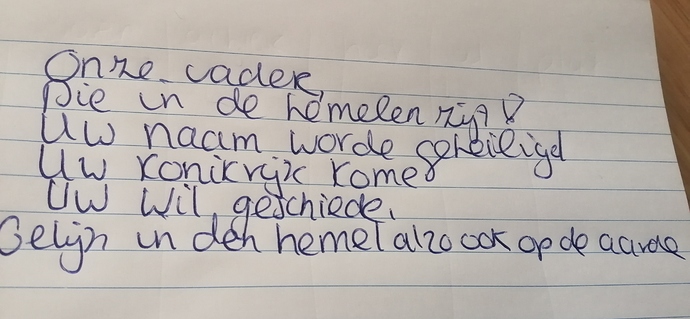 Onze vader,
Die in de hemelen zijt
Uw naam worde geheiligd
Uw Konikrijk kome
Uw Wil, geschiede,
Gelijn in den hemel alzo ook op de aarde